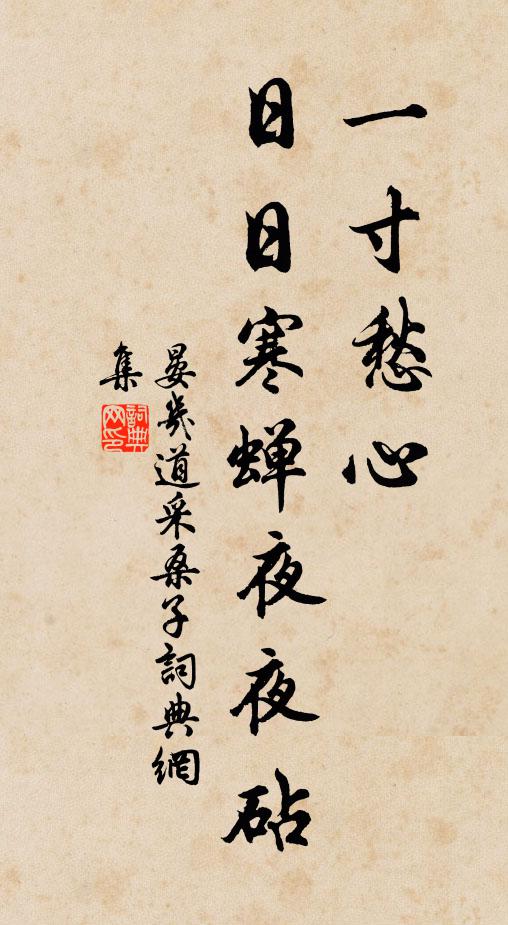 一寸愁心
日日寒蝉夜夜砧
晏幾道采桑子詞典網
集
詞典网印